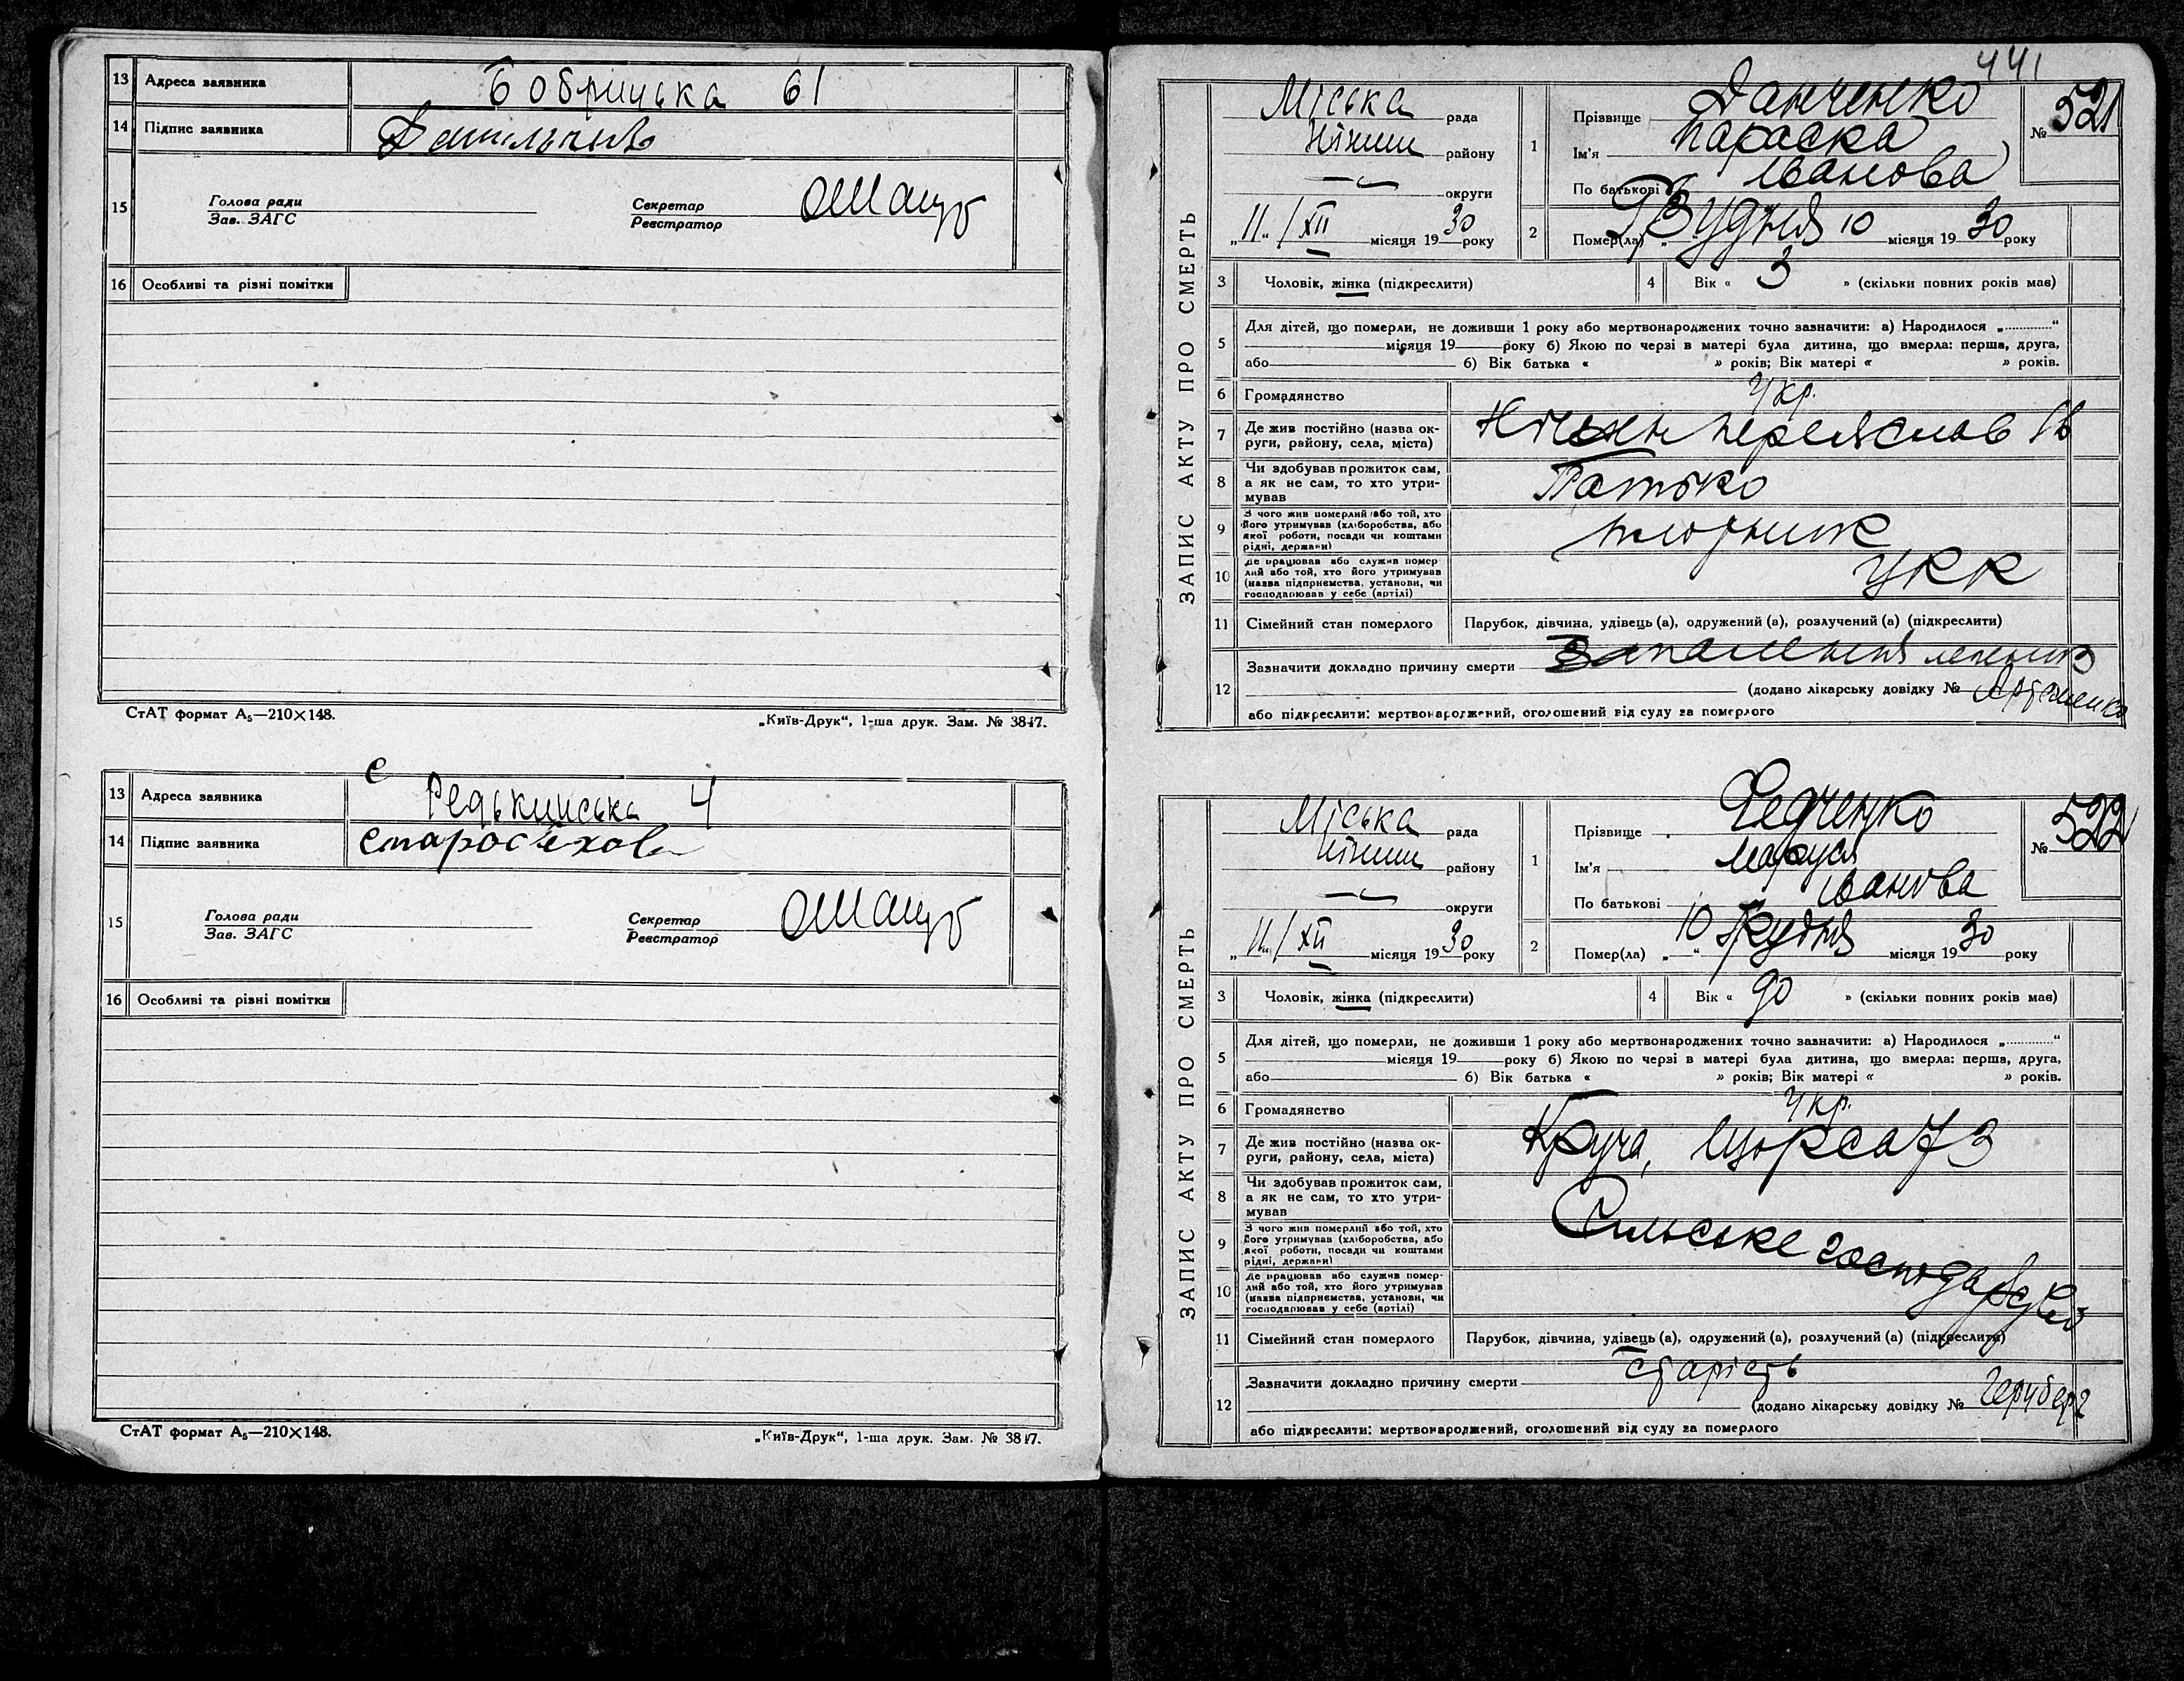 13 Адреса заявника Бобрицька 61
14 Підпис заявника
15 Голова ради Секретар
Зав. ЗАГС Реєстратор
16 Особливі та різні помітки
СтАТ формат А5—210×148. „Київ-Друк“, 1-ша друк. Зам. № 3847.
13 Адреса заявника Редькинська 4
14 Підпис заявника
15 Голова ради Секретар
Зав. ЗАГС Реєстратор
16 Особливі та різні помітки
СтАТ формат А5—210×148. „Київ-Друк“, 1-ша друк. Зам. № 3847.
441
ЗАПИС АКТУ ПРО СМЕРТЬ
Міська рада
Ніжин району
округи
„11“ / XII місяця 1930 року
1 Прізвище Данченко
Ім'я Параска
По батькові Іванова
№ 521
2 Помер(ла) Грудня 10 місяця 1930 року
3 Чоловік, жінка (підкреслити)
4 Вік « 3 » (скільки повних років має)
5 Для дітей, що померли, не доживши 1 року або мертвонароджених точно зазначити: а) Народилося „ “
місяця 19 року б) Якою по черзі в матері була дитина, що вмерла: перша, друга,
або б) Вік батька « » років; Вік матері « » років.
6 Громадянство Укр.
7 Де жив постійно (назва округи, району, села, міста) Ніжин Переяслов
8 Чи здобував прожиток сам, а як не сам, то хто утримував Батько
9 З чого жив померлий або той, хто його утримував (хліборобства, або якої роботи, посади чи коштами рідні, держави) плотник
10 Де працював або служив помер- лий або той, хто його утримував (назва підприємства, установи, чи господарював у себе (артілі) УКК
11 Сімейний стан померлого Парубок, дівчина, удівець (а), одружений (а), розлучений (а) (підкреслити)
12 Зазначити докладно причину смерти Запалення легенів
(додано лікарську довідку № Артеменко
або підкреслити: мертвонароджений, оголошений від суду за померлого
ЗАПИС АКТУ ПРО СМЕРТЬ
Міська рада
Ніжин району
округи
„11“ / XII місяця 1930 року
1 Прізвище Федченко
Ім'я Маруся
По батькові Іванова
№ 522
2 Помер(ла) „ 10 “ Грудня місяця 1930 року
3 Чоловік, жінка (підкреслити)
4 Вік « 90 » (скільки повних років має)
5 Для дітей, що померли, не доживши 1 року або мертвонароджених точно зазначити: а) Народилося „ “
місяця 19 року б) Якою по черзі в матері була дитина, що вмерла: перша, друга,
або б) Вік батька « » років; Вік матері « » років.
6 Громадянство Укр.
7 Де жив постійно (назва округи, району, села, міста) Круча, Щорса 73
8 Чи здобував прожиток сам, а як не сам, то хто утримував
9 З чого жив померлий або той, хто його утримував (хліборобства, або якої роботи, посади чи коштами рідні, держави) Сільське господарство
10 Де працював або служив помер- лий або той, хто його утримував (назва підприємства, установи, чи господарював у себе (артілі)
11 Сімейний стан померлого Парубок, дівчина, удівець (а), одружений (а), розлучений (а) (підкреслити)
12 Зазначити докладно причину смерти старість
(додано лікарську довідку №
або підкреслити: мертвонароджений, оголошений від суду за померлого